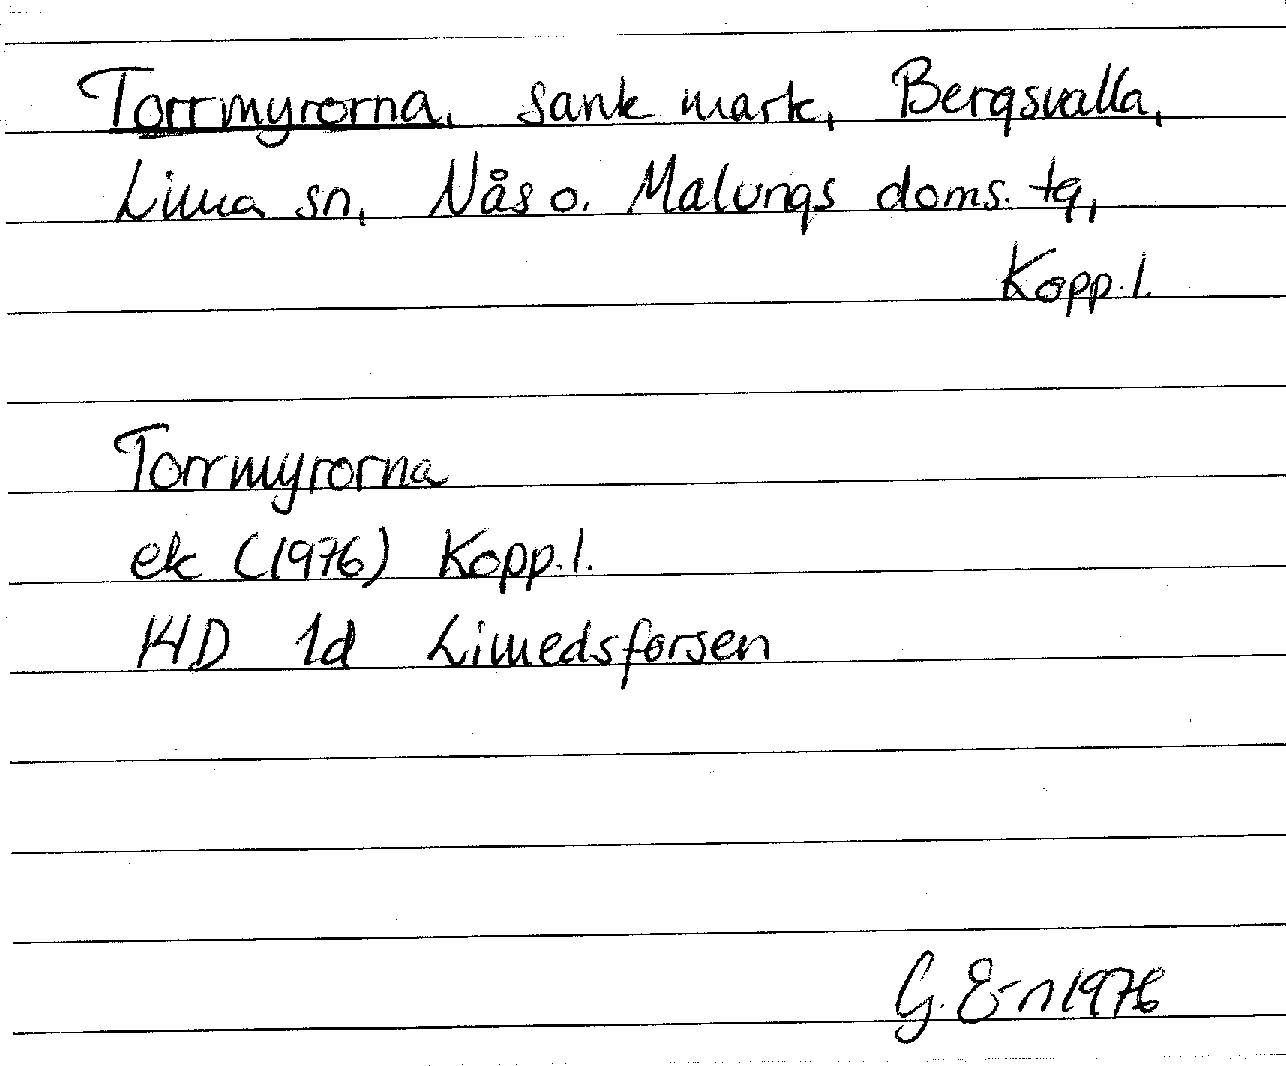 Torrmyrorna, sank mark, Bergsvalla,
Lima sn, Nås o. Malungs doms. tg,
Kopp. l.
Torrmyrorna
ek (1976) Kopp. l.
14D 1d Limedsforsen
G. E-n 1976